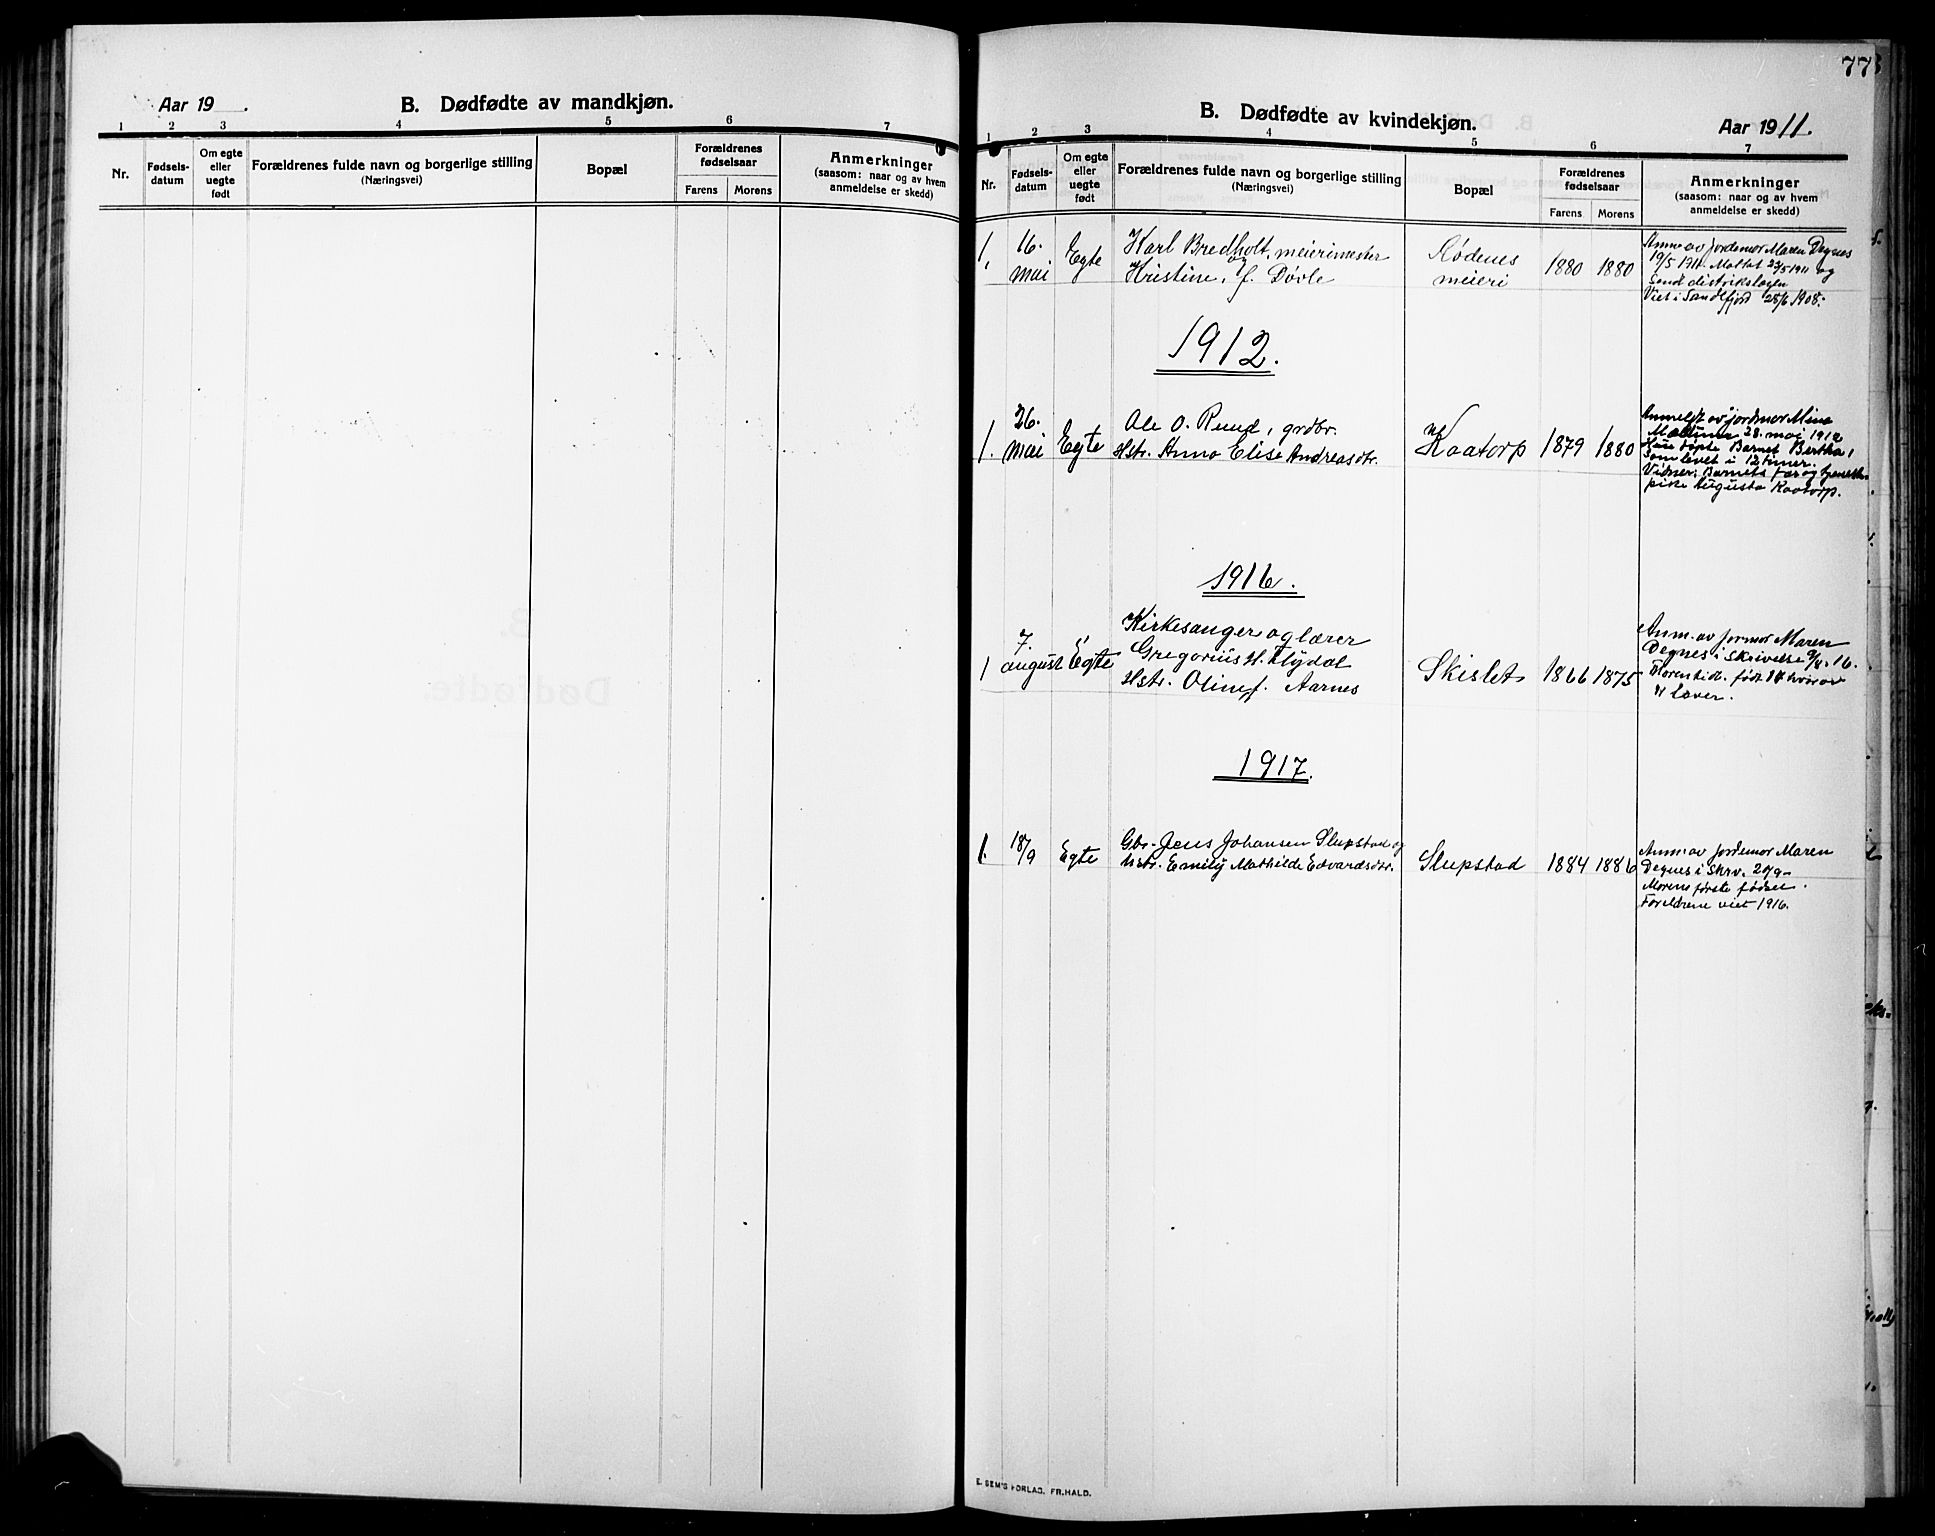 Aar 19 .
B. Dødfødte av mandkjøn.
1 2 3 4 5 6 7
Nr.
Fødsels-
datum
Om egte
eller
uegte
født
Forældrenes fulde navn og borgerlige stilling
(Næringsvei)
Bopæl
Forældrenes
fødselsaar
Farens Morens
Anmerkninger
(saasom: naar og av hvem
anmeldelse er skedd)
77
B. Dødfødte av kvindekjøn.
Aar 1911.
1 2 3 4 5 6 7
Nr.
Fødsels-
datum
Om egte
eller
uegte
født
Forældrenes fulde navn og borgerlige stilling
(Næringsvei)
Bopæl
Forældrenes
fødselsaar
Farens Morens
Anmerkninger
(saasom: naar og av hvem
anmeldelse er skedd)
1.
16.
mai
Egte
Karl Bredholt, meierimester
og
Kristine, f. Døvle
Rødenes
meieri
1880 1880
Anm. av jordemor Maren Degnes
19/5 1911. Mottat 23/5 1911 og
Sendt distriktslægen
Viet i Sandefjord 28/6 1908.
1912.
1.
26.
mai
Egte
Ole O. Ruud, grdbr.
Hstr. Anna Elise Andreasdtr.
Kaatorp
1879 1880
Anmeldt av jordmor Mina
28. mai 1912
Hun døpte Barnet Bertha,
Som levet i 12 timer.
Vidner: Barnets Far og tjeneste-
pike Augusta Kaatorp.
1916.
1
7.
august
Egte
Kirkesanger og lærer
Gregorius H. Flydal
Hstr. Oline f. Aarnes
Skislet
1866 1875
Anm. av jormor Maren
Degnes i Skrivelse 16.
Moren tid. født hvorav
Lever.
1917.
1.
18/9
Egte
Gbr. Jens Johansen Slupstad og
Hstr. Emily Mathilde Edvardsdtr.
Slupstad
1884 1886
Anm. av Jordemor Maren
Degnes i Skrv. 20/9
Morens første fødsel.
Foreldrene viet 1916.
E. SEM'S FORLAG, FR.HALD.